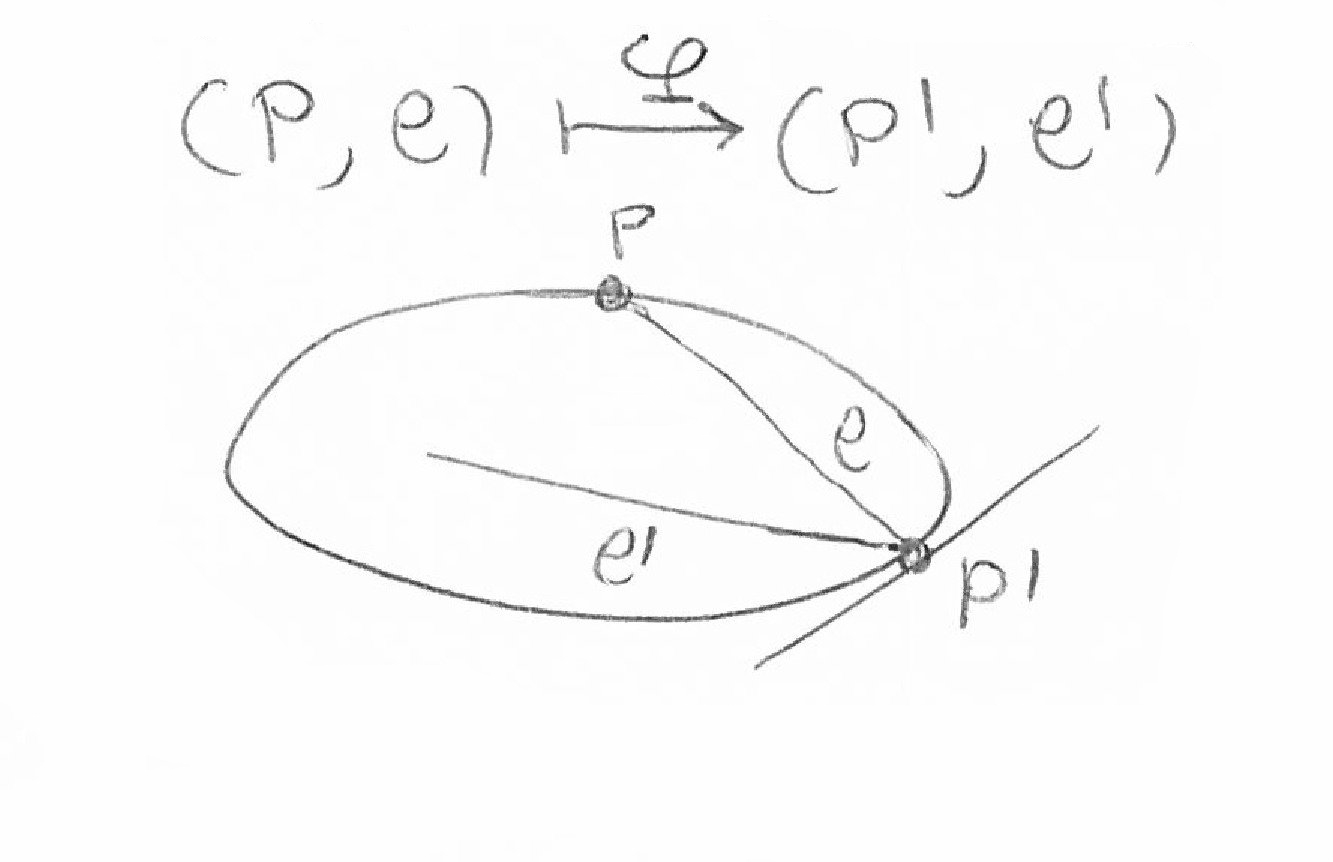 (P, e) ↦ (P', e')
φ
P
e
e'
P'